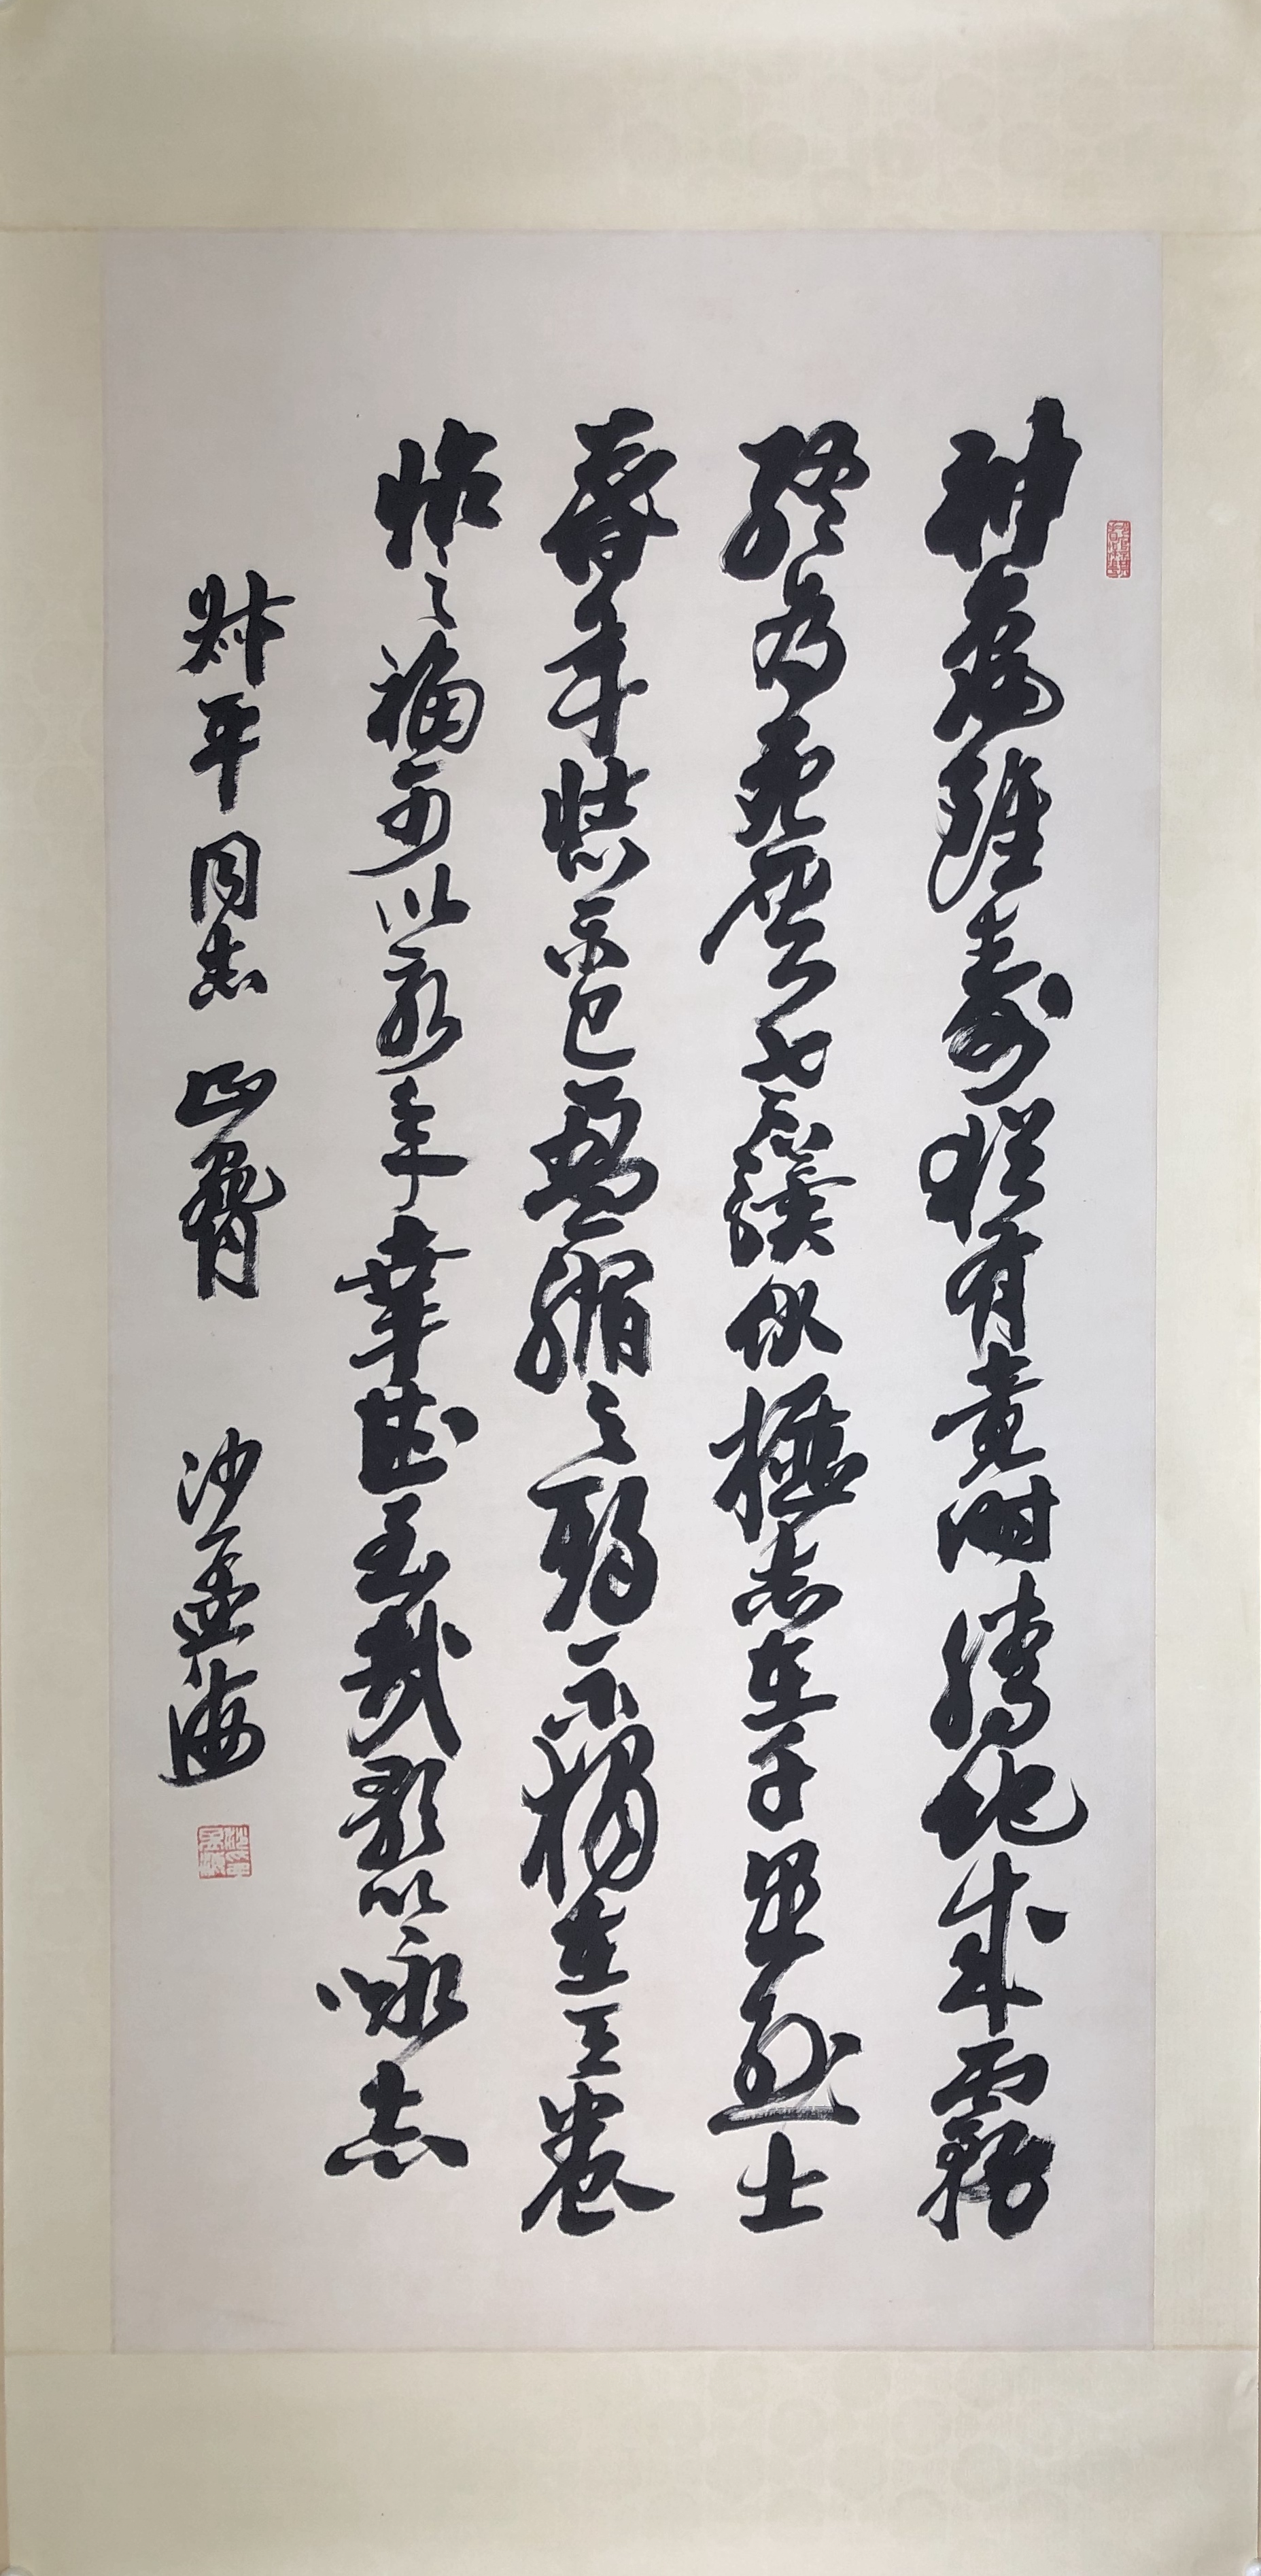 神龜雖壽猶有竟時騰虵乘霧
終為灰老驥伏櫪志在千里烈士
暮年壯心不已盈縮之期不獨在天養
怡之福可以永年幸甚至哉歌以詠志
叔平同志 正臂 沙孟海